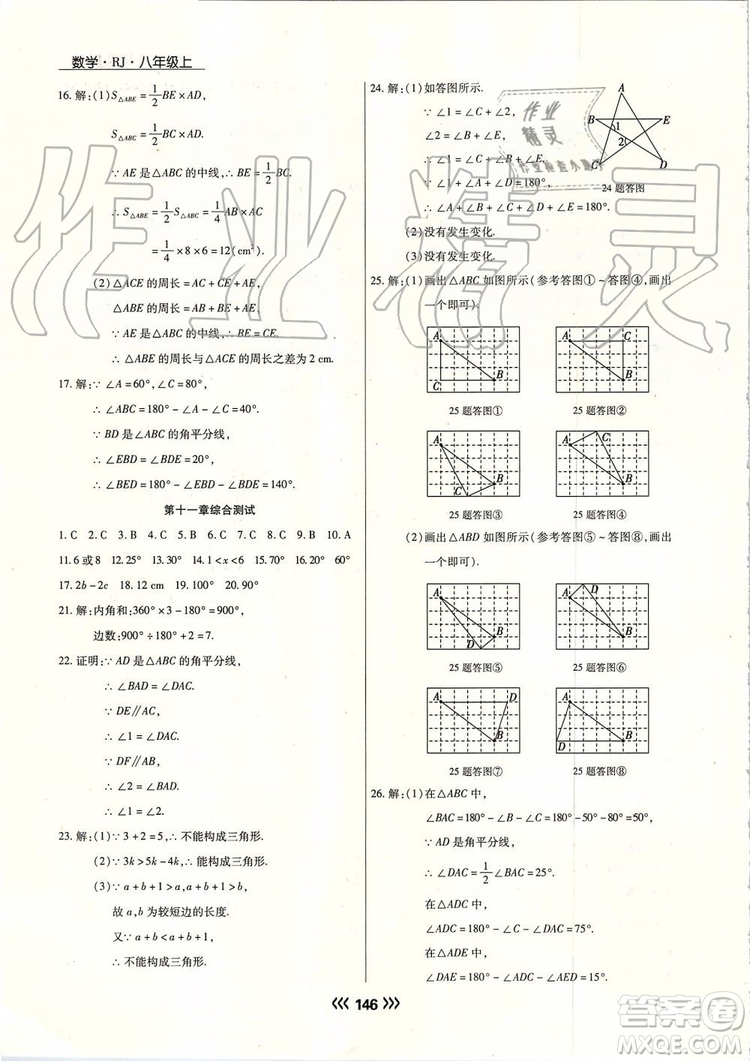 数学·RJ·八年级上
16. 解:(1)S△ABE = 1/2 BE × AD,
S△ABC = 1/2 BC × AD.
∵ AE 是△ABC 的中线,∴ BE = 1/2 BC.
∴ S△ABE = 1/2 S△ABC = 1/4 AB × AC
= 1/4 × 8 × 6 = 12(cm²).
(2)△ACE 的周长 = AC + CE + AE,
△ABE 的周长 = AB + BE + AE.
∵ AE 是△ABC 的中线,∴ BE = CE.
∴ △ABE 的周长与△ACE 的周长之差为 2 cm.
17. 解:∵ ∠A = 60°,∠C = 80°,
∴ ∠ABC = 180° - ∠A - ∠C = 40°.
∵ BD 是△ABC 的角平分线,
∴ ∠EBD = ∠BDE = 20°,
∴ ∠BED = 180° - ∠EBD - ∠BDE = 140°.
第十一章综合测试
1. C 2. C 3. B 4. C 5. C 6. B 7. C 8. B 9. B 10. A
11. 6 或 8 12. 25° 13. 30° 14. 1 < x < 6 15. 20° 16. 20° 60°
17. 2b - 2c 18. 12 cm 19. 100° 20. 90°
21. 解:内角和:360° × 3 - 180° = 900°,
边数:900° ÷ 180° + 2 = 7.
22. 证明:∵ AD 是△ABC 的角平分线,
∴ ∠BAD = ∠DAC.
∵ DE∥AC,
∴ ∠1 = ∠DAC.
∵ DF∥AB,
∴ ∠2 = ∠BAD.
∴ ∠2 = ∠1.
23. 解:(1)∵ 3 + 2 = 5,∴ 不能构成三角形.
(2)∵ 3k > 5k - 4k,∴ 能构成三角形.
(3)∵ a + b + 1 > a, a + b + 1 > b,
故 a, b 为较短边的长度.
又∵ a + b < a + b + 1,
∴ 不能构成三角形.
24. 解:(1)如答图所示.
∵ ∠1 = ∠C + ∠2,
∠2 = ∠B + ∠E,
∴ ∠1 = ∠C + ∠B + ∠E.
∵ ∠A + ∠1 + ∠D = 180°,
∴ ∠A + ∠E + ∠B + ∠C + ∠D = 180°.
A
B E
1
2
C D
24 题答图
(2)没有发生变化.
(3)没有发生变化.
25. 解:(1)画出△ABC 如图所示(参考答图①~答图④,画出
一个即可).
A B C
25 题答图①
A C B
25 题答图②
A B C
25 题答图③
C A B
25 题答图④
(2)画出△ABD 如图所示(参考答图⑤~答图⑧,画出
一个即可).
A B D
25 题答图⑤
D A B
25 题答图⑥
A D B
25 题答图⑦
A B D
25 题答图⑧
26. 解:(1)在△ABC 中,
∠BAC = 180° - ∠B - ∠C = 180° - 50° - 80° = 50°,
∵ AD 是角平分线,
∴ ∠DAC = 1/2 ∠BAC = 25°.
在△ADC 中,
∠ADC = 180° - ∠C - ∠DAC = 75°;
在△ADE 中,
∠DAE = 180° - ∠ADC - ∠AED = 15°.
146
作业精灵
作业
精灵
作业检查小助手
答案圈
MXQE.COM